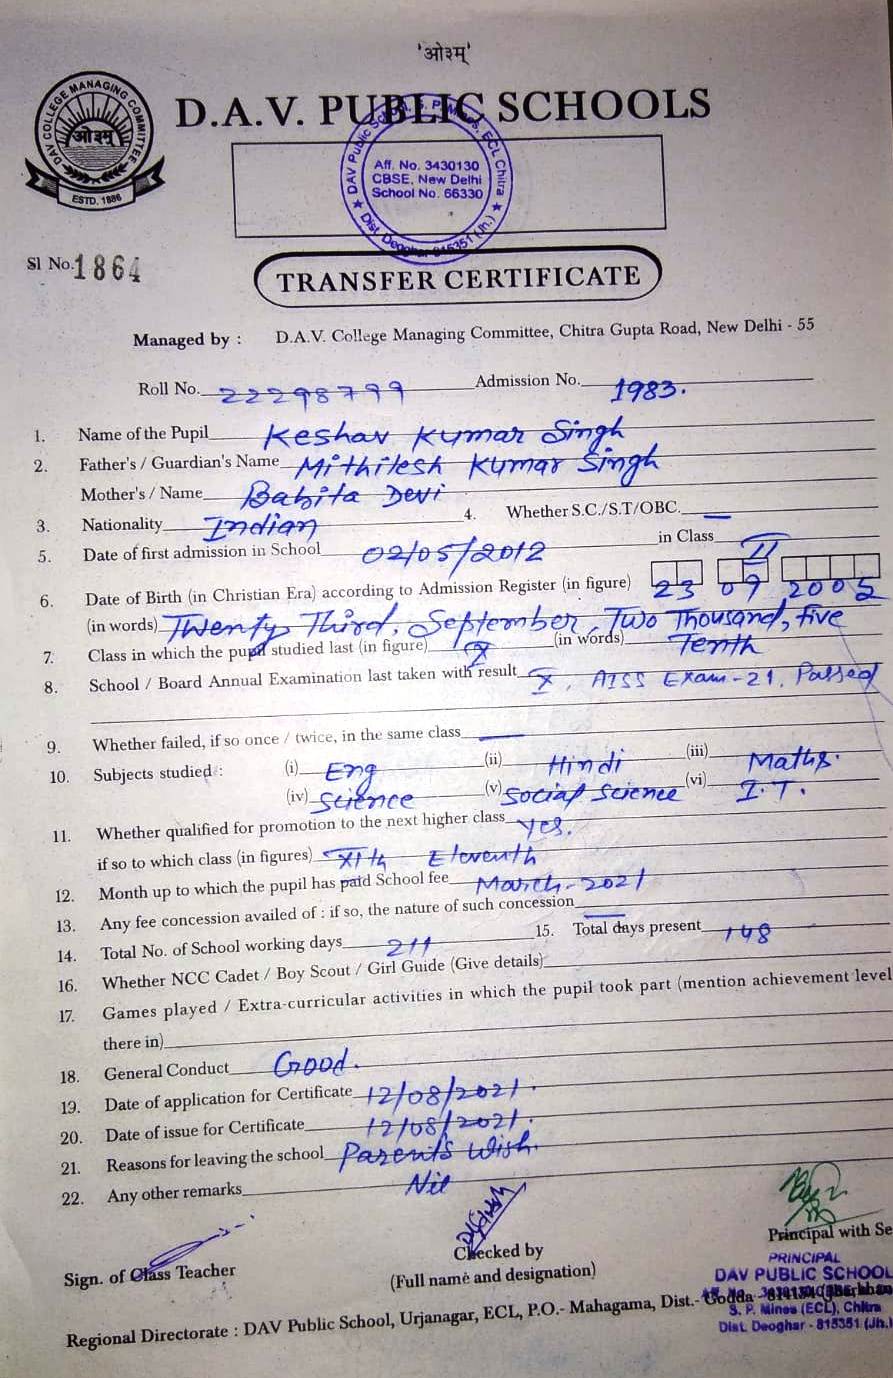 'ओ३म्'
DAV COLLEGE MANAGING COMMITTEE
ओ३म्
ESTD. 1886
D.A.V. PUBLIC SCHOOLS
DAV Public School, S. P. Mines, ECL Chitra
Aff. No. 3430130
CBSE, New Delhi
School No. 66330
Dist. Deoghar 815351 (Jh.)
Sl No. 1864
TRANSFER CERTIFICATE
Managed by : D.A.V. College Managing Committee, Chitra Gupta Road, New Delhi - 55
Roll No. 22298799 Admission No. 1983.
1. Name of the Pupil Keshav Kumar Singh
2. Father's / Guardian's Name Mithilesh Kumar Singh
Mother's / Name Babita Devi
3. Nationality Indian 4. Whether S.C./S.T/OBC. —
5. Date of first admission in School 02/05/2012 in Class II
6. Date of Birth (in Christian Era) according to Admission Register (in figure) 23 09 2005
(in words) Twenty Third, September, Two Thousand, five
7. Class in which the pupil studied last (in figure) X (in words) Tenth
8. School / Board Annual Examination last taken with result X, AISS Exam-21, Passed
9. Whether failed, if so once / twice, in the same class —
10. Subjects studied : (i) Eng (ii) Hindi (iii) Maths.
(iv) Science (v) Social Science (vi) I.T.
11. Whether qualified for promotion to the next higher class Yes.
if so to which class (in figures) XIth Eleventh
12. Month up to which the pupil has paid School fee March-2021
13. Any fee concession availed of : if so, the nature of such concession —
14. Total No. of School working days 211 15. Total days present 148
16. Whether NCC Cadet / Boy Scout / Girl Guide (Give details)
17. Games played / Extra-curricular activities in which the pupil took part (mention achievement level
there in)
18. General Conduct Good.
19. Date of application for Certificate 12/08/2021.
20. Date of issue for Certificate 12/08/2021.
21. Reasons for leaving the school Parent's Wish.
22. Any other remarks Nil
Sign. of Class Teacher
Checked by
(Full name and designation)
Principal with Se
PRINCIPAL
DAV PUBLIC SCHOOL
S. P. Mines (ECL), Chitra
Dist. Deoghar - 815351 (Jh.)
Regional Directorate : DAV Public School, Urjanagar, ECL, P.O.- Mahagama, Dist.- Godda